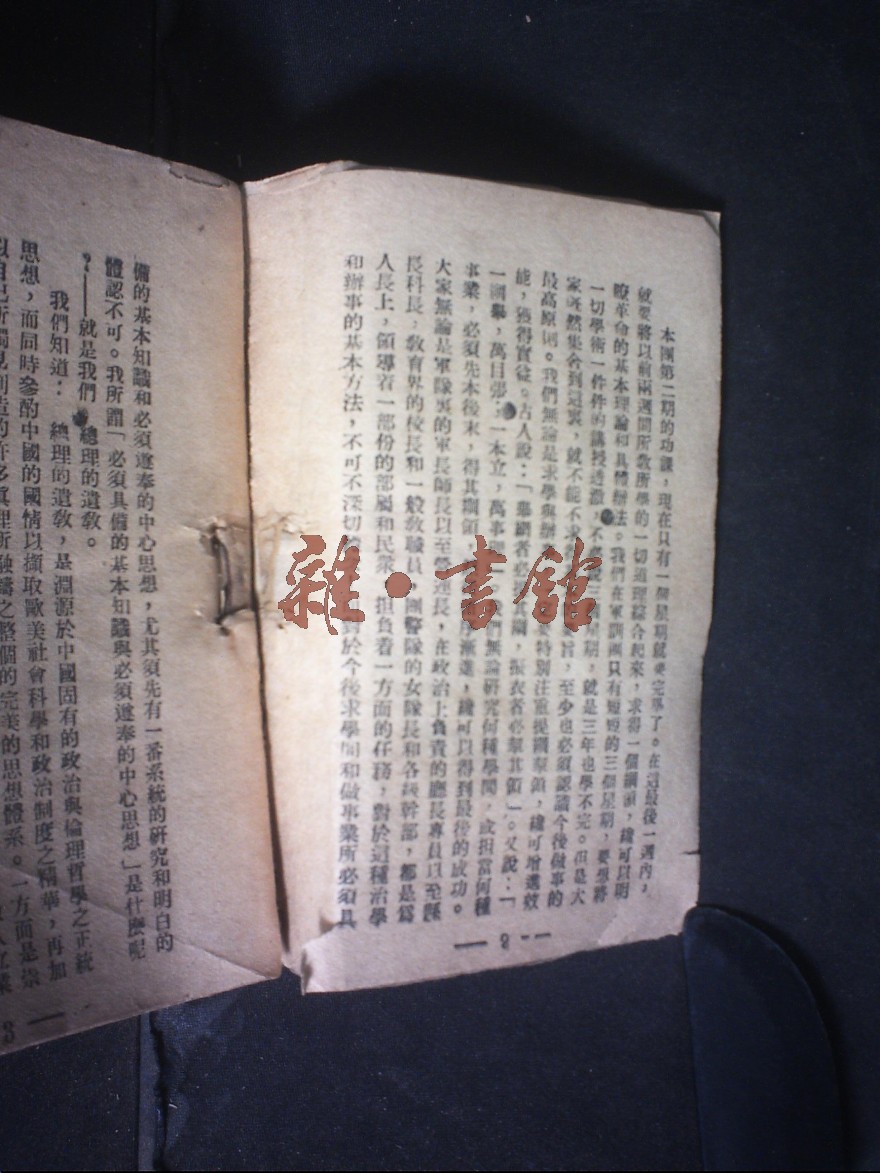 本團第二期的功課，現在只有一個星期就要完畢了。在這最後一週內，
就要將以前兩週間所敎所學的一切道理綜合起來，求得一個綱領，纔可以明
瞭革命的基本理論和具體辦法。我們在軍訓團只有短短的三個星期，要想將
一切學術一件件的講授透澈，不 期，就是三年也學不完。但是大
家旣然集合到這裏，就不能不求 旨，至少也必須認識今後做事的
最高原則。我們無論是求學與辦 要特別注重提綱挈領，纔可增進效
能，獲得實益。古人說：「舉網者必 綱，振衣者必挈其領」。又說：「
一綱舉，萬目張，一本立，萬事 們無論研究何種學問，或担當何種
事業，必須先本後末，得其綱領 序漸進，纔可以得到最後的成功。
大家無論是軍隊裏的軍長師長以至 連長，在政治上負責的廳長專員以至縣
長科長，敎育界的校長和一般敎職員，團警隊的女隊長和各級幹部，都是爲
人長上，領導着一部份的部屬和民衆，担負着一方面的任務，對於這種治學
和辦事的基本方法，不可不深切 對於今後求學問和做事業所必須具
— 2 —
備的基本知識和必須遵奉的中心思想，尤其須先有一番系統的研究和明白的
體認不可。我所謂「必須具備的基本知識與必須遵奉的中心思想」是什麼呢
？——就是我們 總理的遺敎。
我們知道： 總理的遺敎，是淵源於中國固有的政治與倫理哲學之正統
思想，而同時參酌中國的國情以擷取歐美社會科學和政治制度之精華，再加
以自己所獨見創造的許多眞理所融鑄之整個的完美的思想體系。一方面是崇
3 —
雜·書館